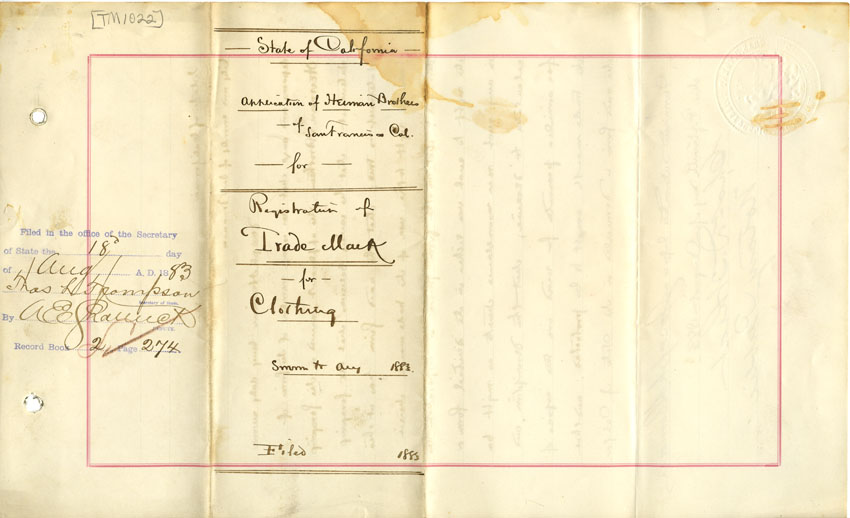 [TM1022]
State of California
Application of Heiman Brothers
of
San Francisco Cal.
for
Registration of
Trade Mark
for
Clothing
Sworn to Aug 1883.
Filed 1883
Filed in the office of the Secretary
of State the 18 day
of Aug A. D. 1883
Thos L. Thompson
Secretary of State.
By A E
Record Book 2 Page 274